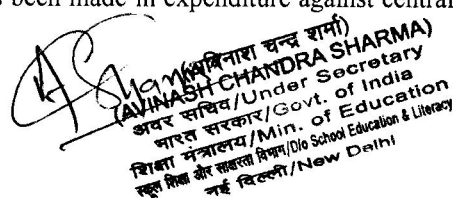 s been made in expenditure against central
(अविनाश चन्द्र शर्मा)
(AVINASH CHANDRA SHARMA)
अवर सचिव/Under Secretary
भारत सरकार/Govt. of India
शिक्षा मंत्रालय/Min. of Education
स्कूल शिक्षा और साक्षरता विभाग/D/o School Education & Literacy
नई दिल्ली/New Delhi